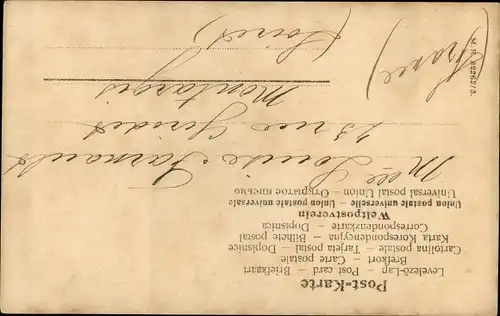 Post-Karte
Levelező-Lap — Post card — Briefkaart
Brefkort — Carte postale
Cartolina postale — Tarjeta postal — Dopisnice
Karta Korespondencyjna — Bilhete postal
Correspondenzkarte — Dopisnica
Weltpostverein
Union postale universelle — Union postale universale
Universal postal Union — Открытое письмо
Mlle Louise
23 rue
Montargis
(Loiret)
(France)
M. P. 22262/3.